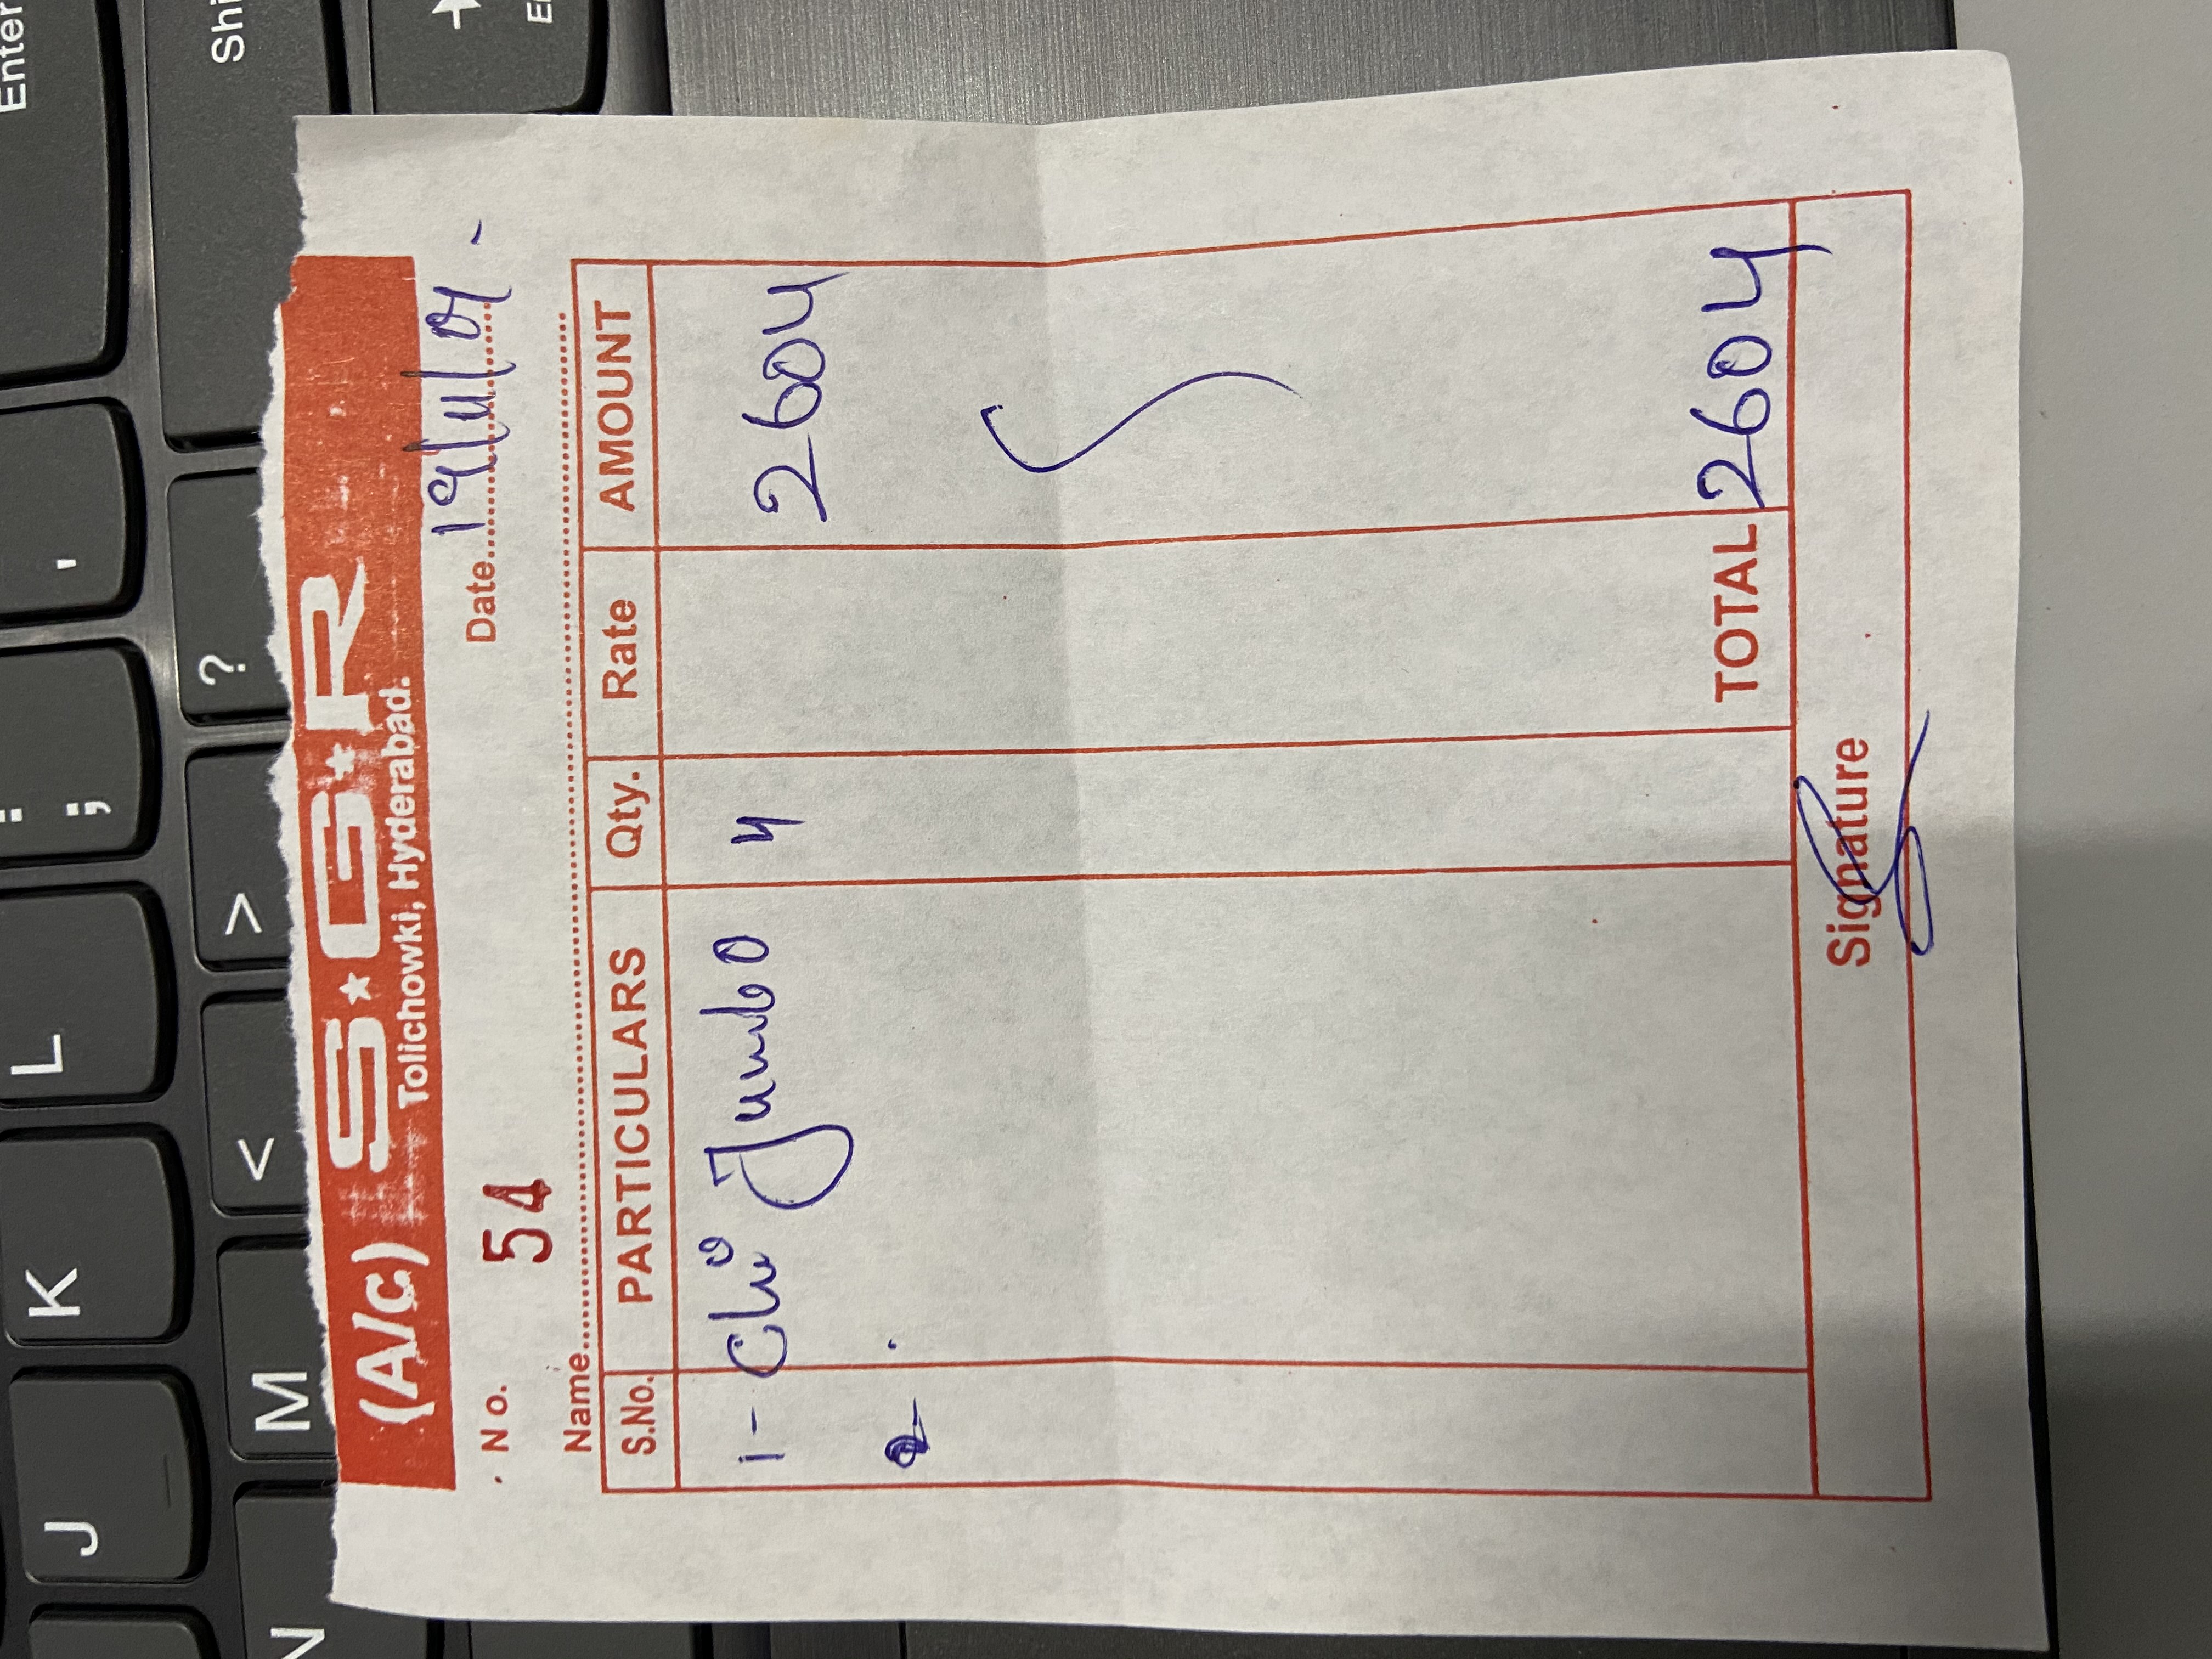 J K L : ; ' Enter
N M < > ? Shi
(A/c) S★G★R
Tolichowki, Hyderabad.
No. 54
Date 19/11/
Name
S.No. PARTICULARS Qty. Rate AMOUNT
1- Jumbo 4 2604
2
TOTAL 2604
Signature